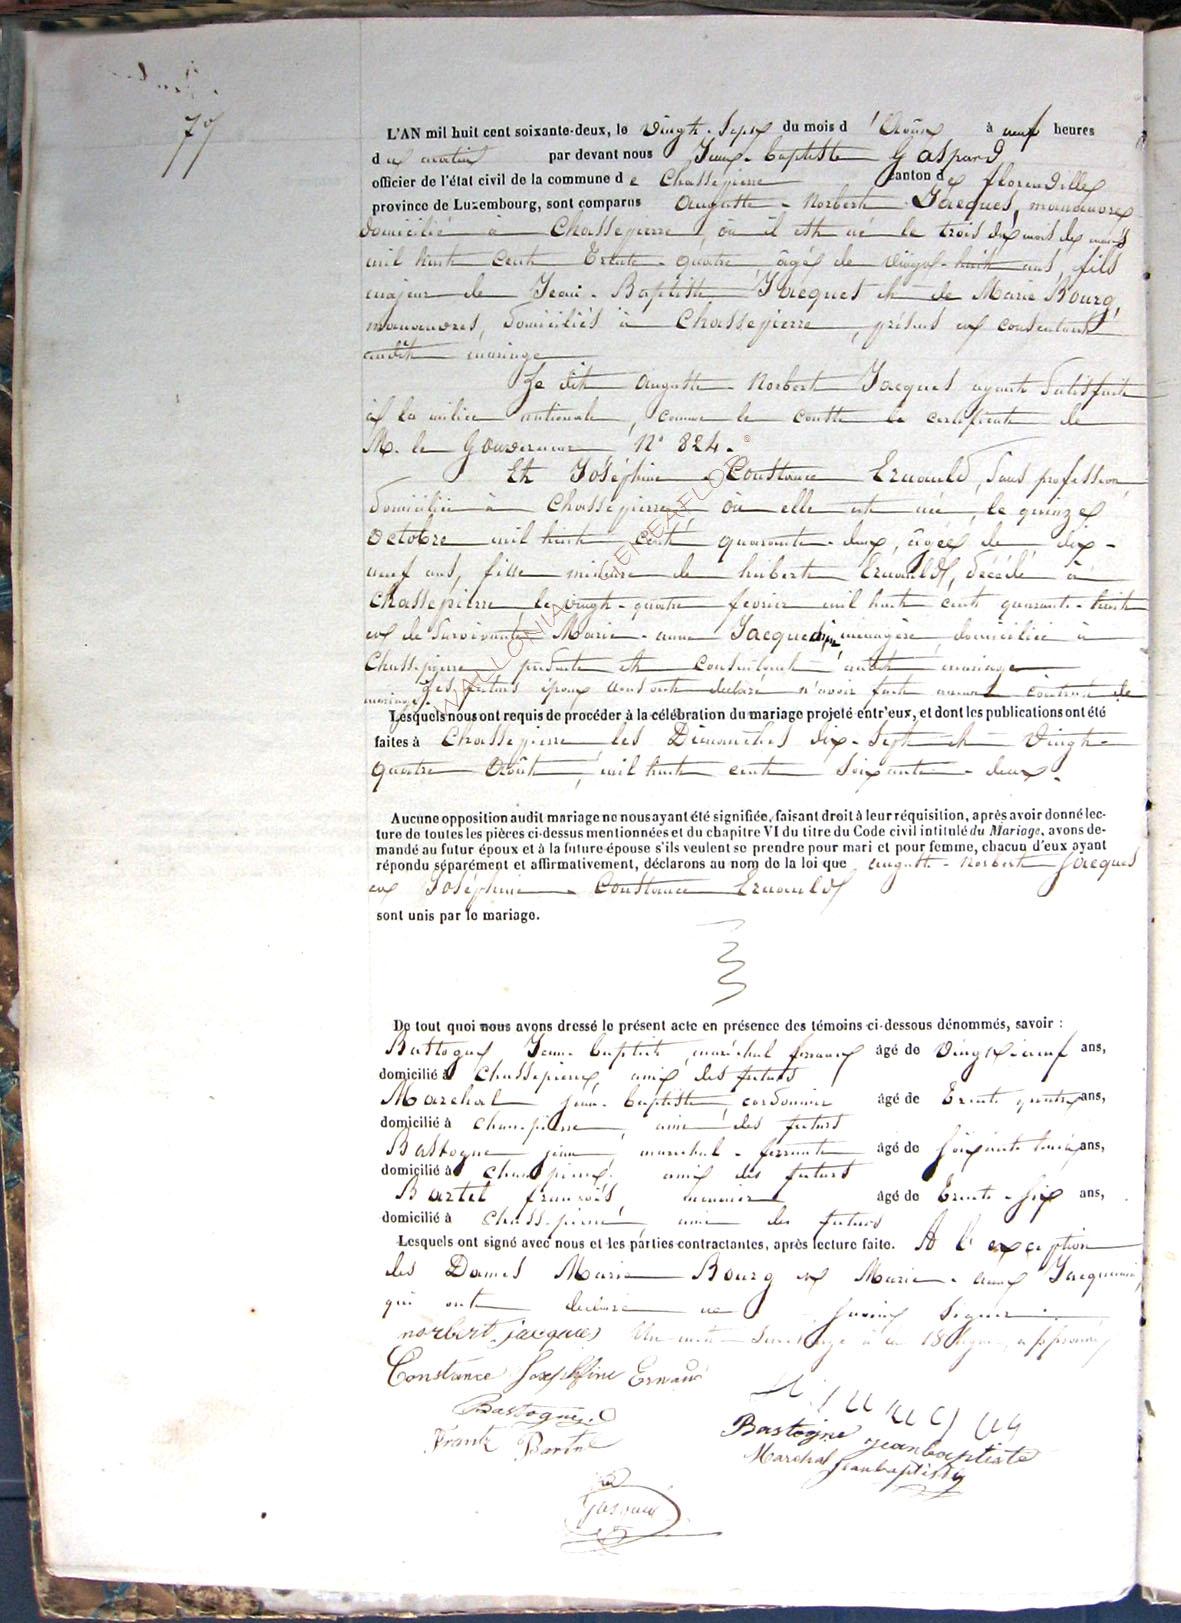 7
L'AN mil huit cent soixante-deux, le vingt-sept du mois d'Août à neuf heures
du matin par devant nous Jean-Baptiste Gaspard
officier de l'état civil de la commune de Chassepierre canton de florenville
province de Luxembourg, sont comparus Auguste-Norbert Jacques, manœuvre
domicilié à Chassepierre, où il est né le trois du mois de mars
mil huit cent Trente-quatre, âgé de vingt-huit ans, fils
majeur de Jean-Baptiste Jacques et de Marie Bourg,
manœuvres, domiciliés à Chassepierre, présens et consentants
audit mariage
Le dit Auguste-Norbert Jacques ayant satisfait
à la milice nationale, comme le conste le certificat de
M. le Gouverneur N° 824.
Et Joséphine-Constance Ernauld, sans profession,
domiciliée à Chassepierre où elle est née, le quinze
Octobre mil huit cent quarante-deux, âgée de dix-
neuf ans, fille mineure de hubert Ernauld, décédé à
Chassepierre le vingt-quatre fevrier mil huit cent quarante-huit
et de Survivante Marie-anne Jacquemin, ménagère, domiciliée à
Chassepierre présente et consentante audit mariage
Les futurs époux nous ont déclaré n'avoir fait aucun contrat de
mariage.
Lesquels nous ont requis de procéder à la célébration du mariage projeté entr'eux, et dont les publications ont été
faites à Chassepierre les Dimanches dix-sept et vingt-
quatre Août, mil huit cent soixante-deux.
Aucune opposition audit mariage ne nous ayant été signifiée, faisant droit à leur réquisition, après avoir donné lec-
ture de toutes les pièces ci-dessus mentionnées et du chapitre VI du titre du Code civil intitulé du Mariage, avons de-
mandé au futur époux et à la future épouse s'ils veulent se prendre pour mari et pour femme, chacun d'eux ayant
répondu séparément et affirmativement, déclarons au nom de la loi que Auguste-Norbert Jacques
et Joséphine-Constance Ernauld
sont unis par le mariage.
De tout quoi nous avons dressé le présent acte en présence des témoins ci-dessous dénommés, savoir :
Bastogne Jean-baptiste, maréchal ferrant âgé de vingt neuf ans,
domicilié à Chassepierre, ami des futurs
Marchal jean-baptiste, cordonnier âgé de Trente quatre ans,
domicilié à chassepierre, ami des futurs
Bastogne jean, maréchal-ferrant âgé de soixante trois ans,
domicilié à chassepierre, ami des futurs
Bartel françois, menuisier âgé de Trente-six ans,
domicilié à chassepierre, ami des futurs
Lesquels ont signé avec nous et les parties contractantes, après lecture faite. A l'exception
des Dames Marie Bourg et Marie-anne Jacquemin,
qui ont déclaré ne savoir signer.
norbert jacques Un mot surchargé à la 18 ligne, approuvé
Constance Josephine Ernaud
Bastogne
Bastogne jeanbaptiste
Frantz Bartel
Marchal Jeanbaptiste
WALLONIA GENEAFLOR ©